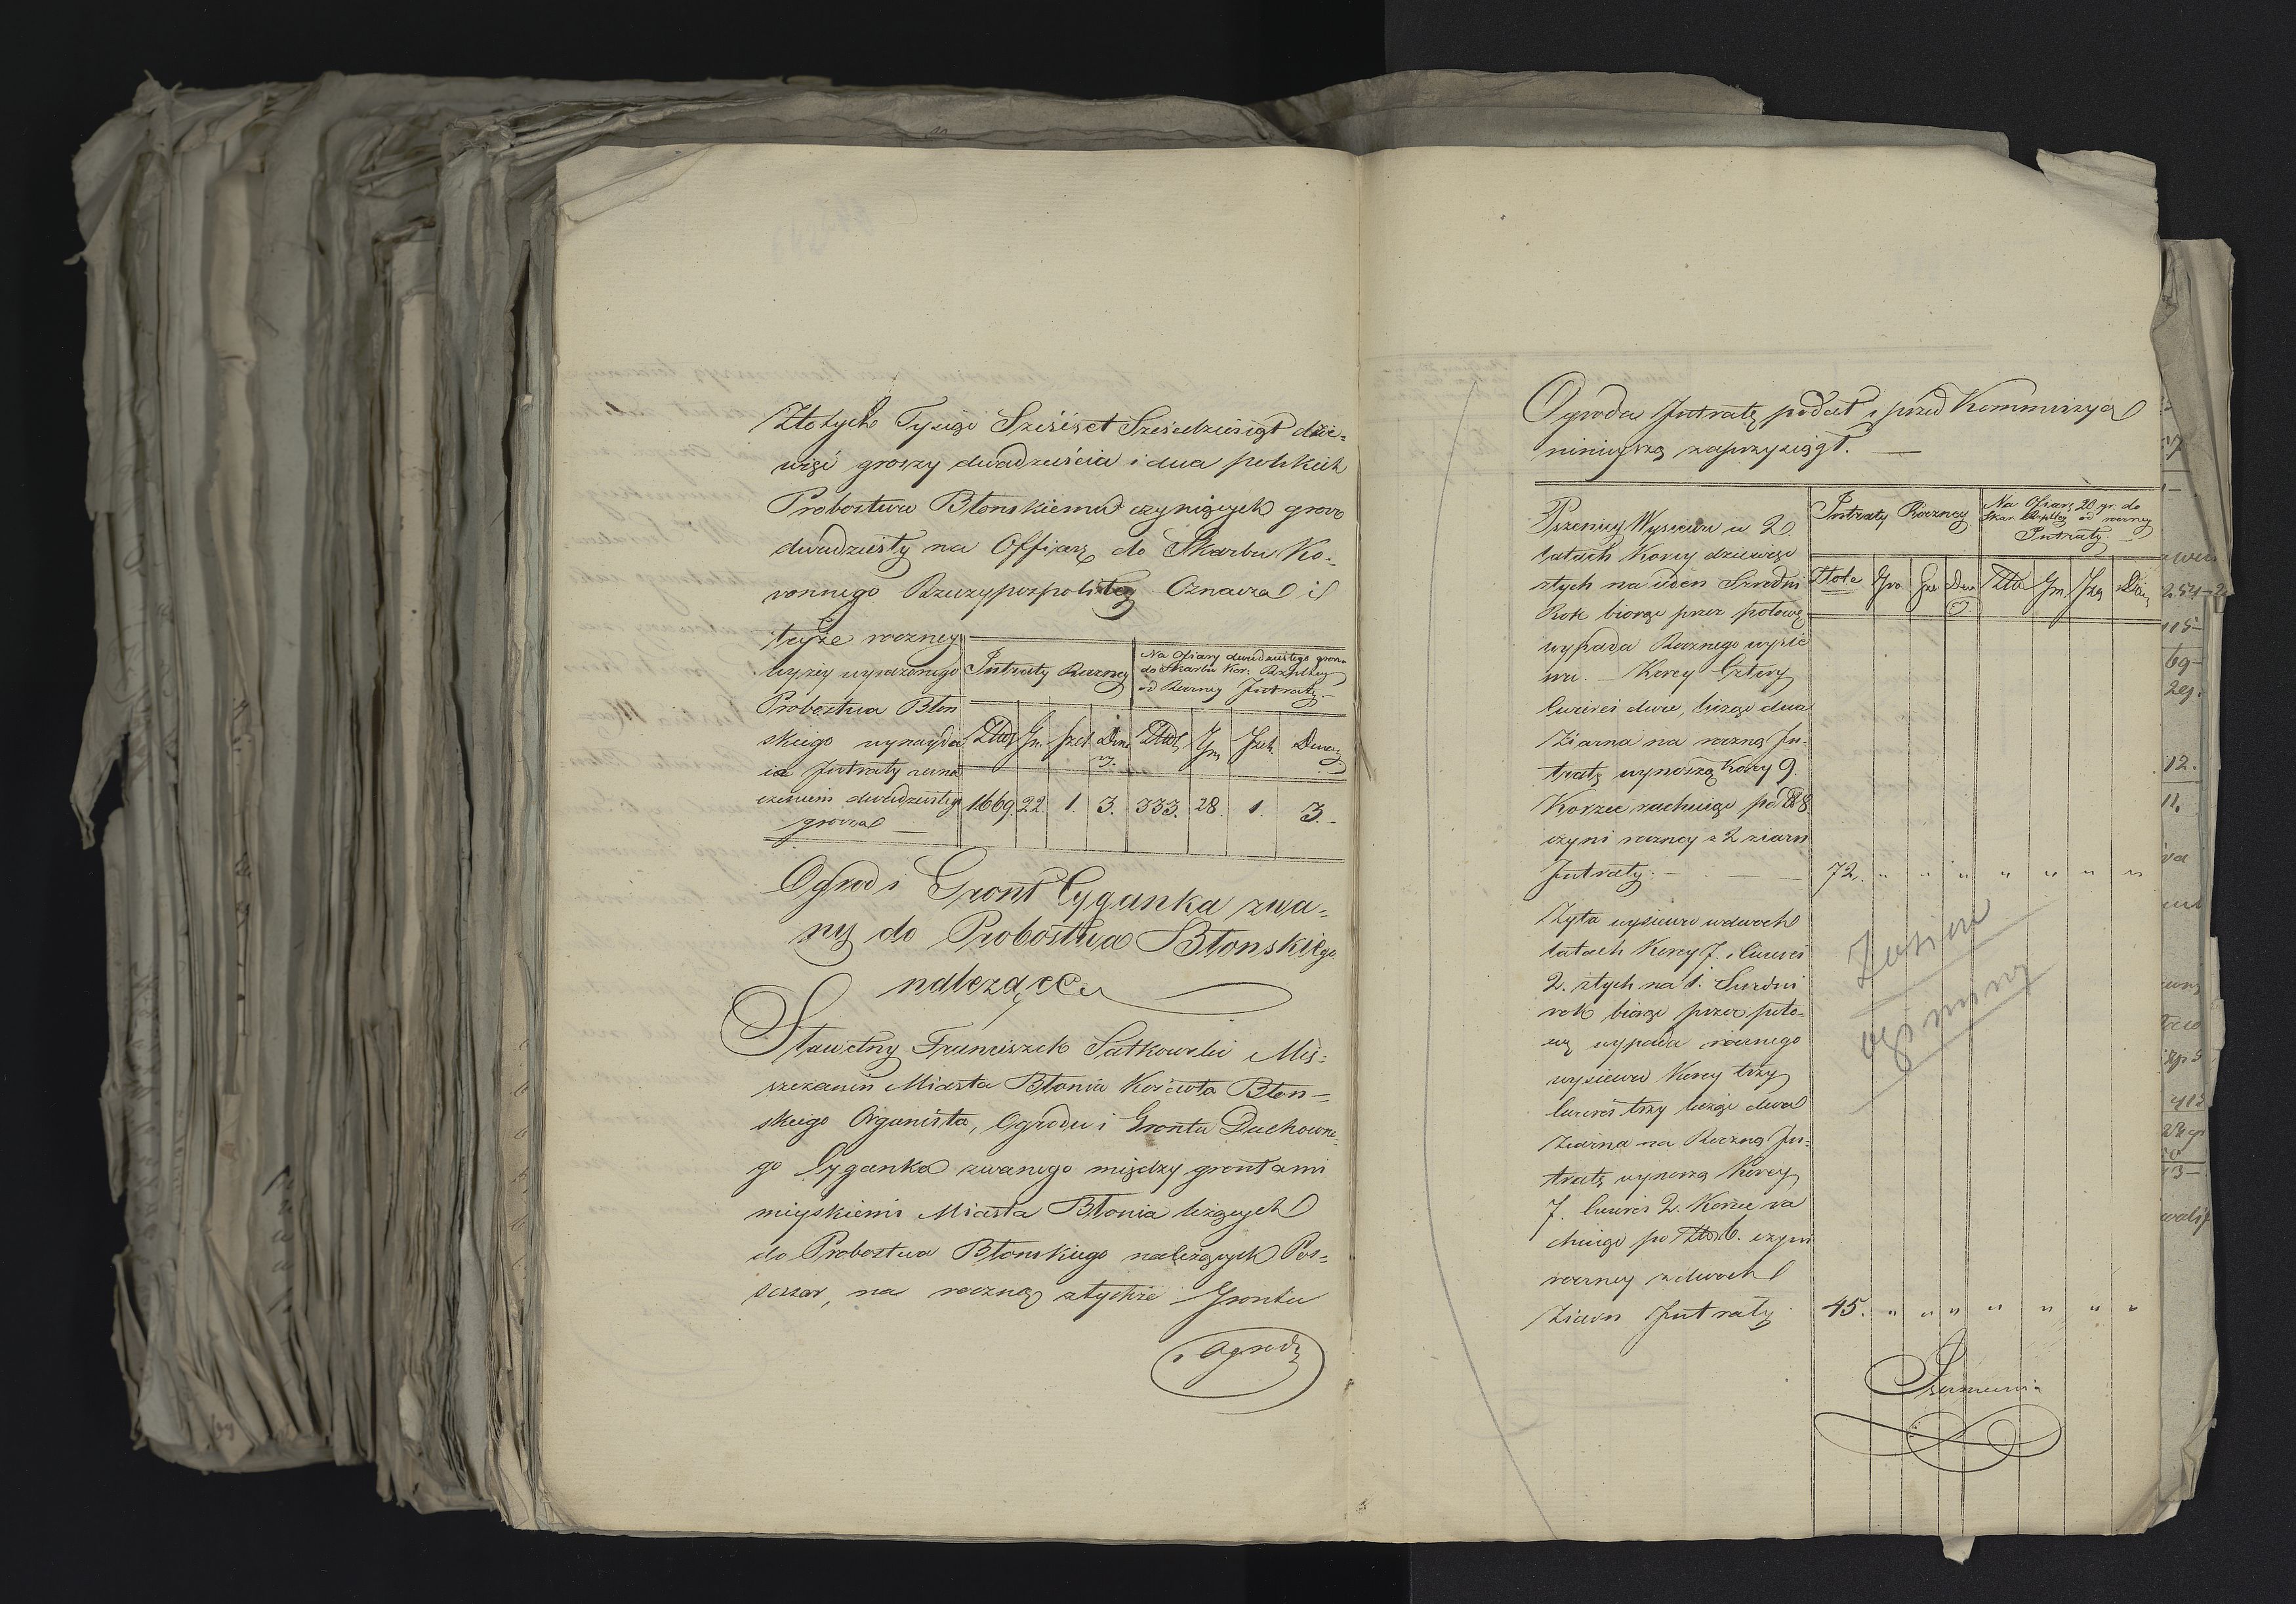 Złotych Tysiąc Sześćset Sześćdziesiąt dzie-
więć groszy dwadzieścia i dwa polskich
Probostwu Błonskiemu czyniących grosz
dwudziesty na Offiarę do Skarbu Ko-
ronnego Rzeczypospolitey Oznacza i
teyże roczney
wyżey wyrażonego
Probostwa Błon
skiego wynayda
ia Intraty
dwudziestego
grosza —
Intraty Roczney
Na Ofiary dwudziestego grosza
do Skarbu Kor: Rzpltey
od Roczney Intraty.-
Złot Gr. Szel Dena
ry. Złot Gro Szel. Denary
1669. 22. 1. 3. 333. 28. 1. 3.-
Ogrod i Gront Cyganka zwa-
ny do Probostwa Błonskiego
należące
Sławetny Franciszek Satkowski Mie-
szczanin Miasta Błonia Kościoła Błon-
skiego Organista, Ogrodu i Grontu Duchowne-
go Cyganka zwanego między grontami
mieyskiemi Miasta Błonia leżących
do Probostwa Błonskiego należących Pos-
sessor, na roczną ztychże Grontu
i Ogrodu
Ogroda Intratę podał i przed Kommissyą
ninieyszą zaprzysiągł. —
Pszenicy Wysiewu w 2.
latach Korcy dziewięć
ztych na ieden Srzedni
Rok biorąc przez połowę
wypada Rocznego wysie
wu. — Korcy Cztery
Cwierci dwie, licząc dwa
Ziarna na roczną In-
tratę wynoszą Korcy 9.
Korzec rachuiąc po 8
czyni roczney z 2 ziarn
Intraty. — 72. " " " " " " "
Intraty Roczney
Na Ofiarę 20 gr. do
Skar. Rzpltey od roczney
Intraty.
Złote Gro Sze Den Złte Gro Sze Den
Żyta wysiewu wdwoch
latach Korcy 7. i Cwierci
2. ztych na 1. Srzedni
rok biorąc przez poło-
wę wypada rocznego
wysiewu Korcy trzy
Cwierci trzy licząc dwa
Ziarna na Roczną In-
tratę wynoszą Korcy
7. Cwierci 2. Korzec ra
chuiąc po Złt. 6. czyni
roczney zdwoch
Ziarn Intraty 45. " " " " " " "
Zasiew
ozimny